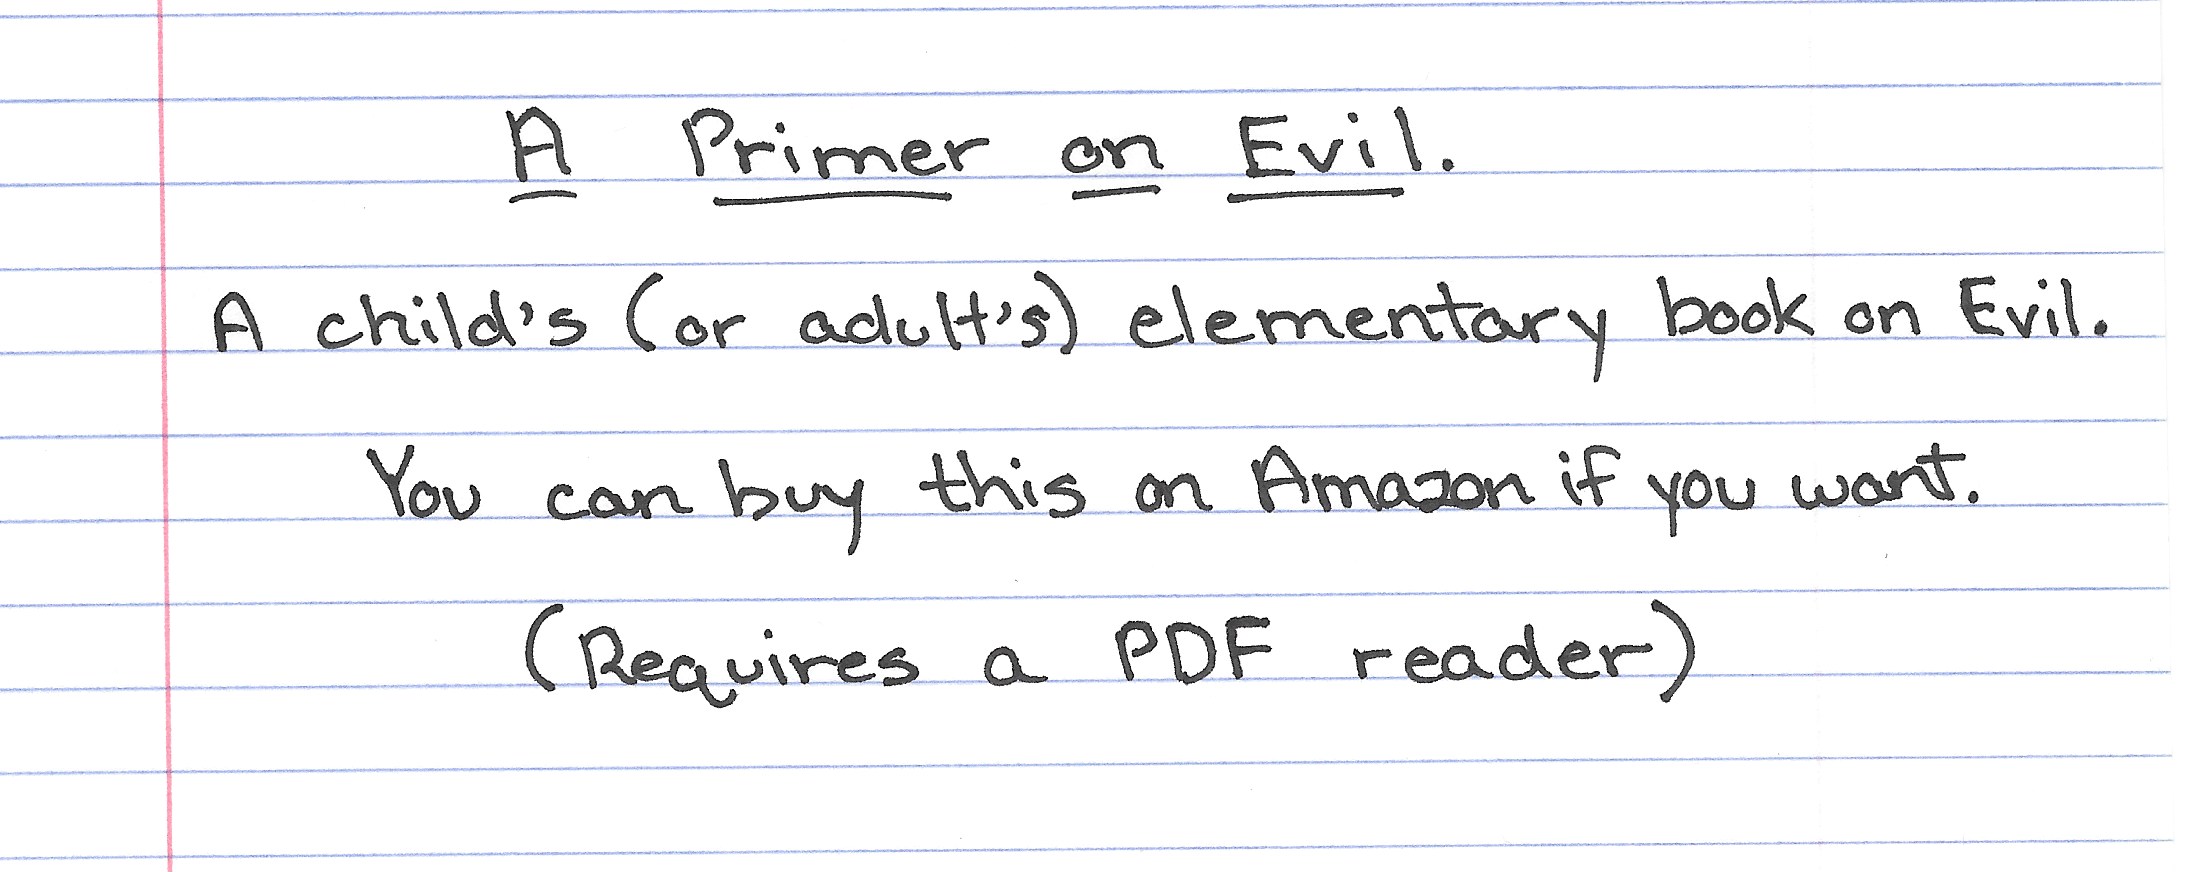 A Primer on Evil.
A child's (or adult's) elementary book on Evil.
You can buy this on Amazon if you want.
(Requires a PDF reader)